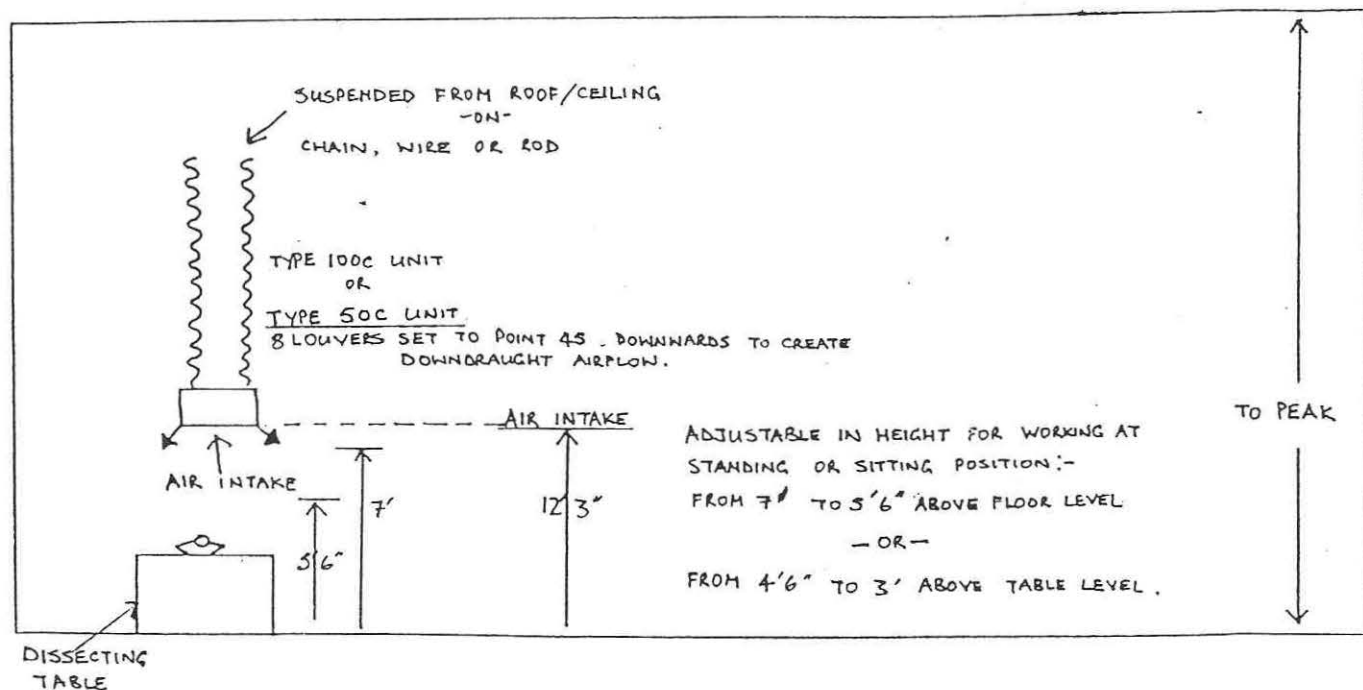 SUSPENDED FROM ROOF/CEILING
-ON-
CHAIN, WIRE OR ROD
TYPE 100C UNIT
OR
TYPE 50C UNIT
8 LOUVERS SET TO POINT 45. DOWNWARDS TO CREATE
DOWNDRAUGHT AIRFLOW.
AIR INTAKE
AIR INTAKE
5'6"
7'
12'3"
ADJUSTABLE IN HEIGHT FOR WORKING AT
STANDING OR SITTING POSITION:-
FROM 7' TO 5'6" ABOVE FLOOR LEVEL
— OR —
FROM 4'6" TO 3' ABOVE TABLE LEVEL.
TO PEAK
DISSECTING
TABLE